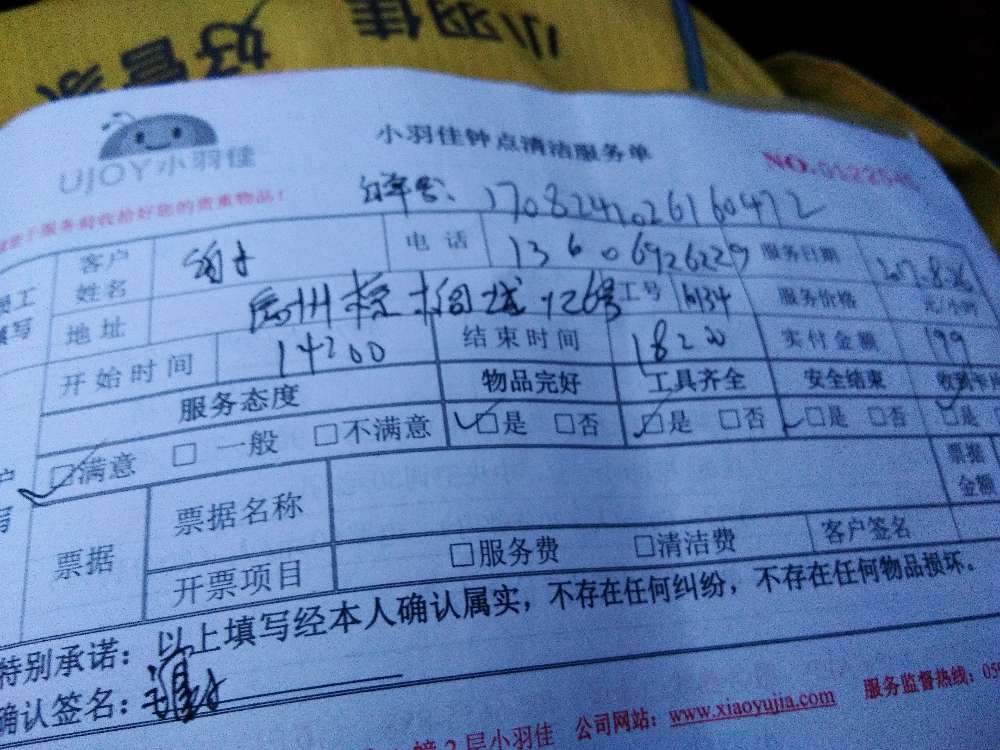 小羽佳
好管家
UJOY小羽佳
小羽佳钟点清洁服务单
NO.
于服务前收拾好您的贵重物品！
1708242026160472
客户姓名
电话 13606926229
服务日期 2017.8.26
地址 126号
工号 16134
服务价格 元/小时
开始时间 14:00
结束时间 18:00
实付金额 199
服务态度
物品完好
工具齐全
安全结束
收到
□满意 □一般 □不满意
□是 □否
□是 □否
□是 □否
□是
票据
票据名称
票据金额
开票项目
□服务费 □清洁费
客户签名
特别承诺：以上填写经本人确认属实，不存在任何纠纷，不存在任何物品损坏。
确认签名：
2层小羽佳 公司网站：www.xiaoyujia.com 服务监督热线：059